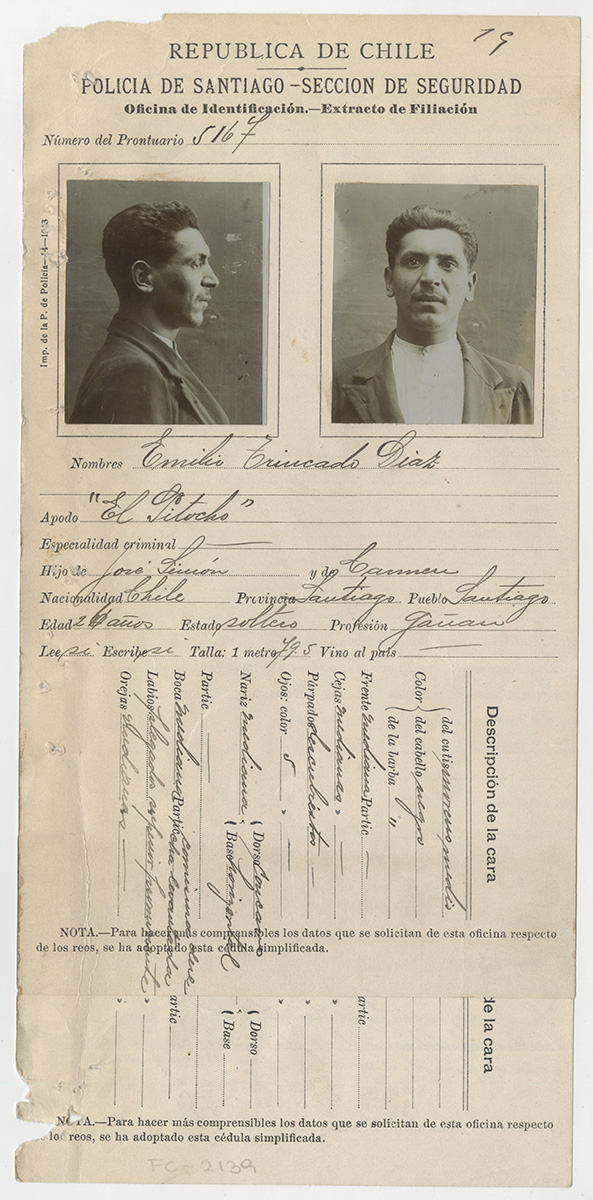 19
REPUBLICA DE CHILE
POLICIA DE SANTIAGO–SECCION DE SEGURIDAD
Oficina de Identificación.—Extracto de Filiación
Número del Prontuario 5167
Imp. de la P. de Policía—
Nombres Emilio Trincado Diaz
Apodo "El Pitocho"
Especialidad criminal —
Hijo de José Simón y de Carmen
Nacionalidad Chile Provincia Santiago Pueblo Santiago
Edad años Estado soltero Profesión Gañan
Lee si Escribe si Talla: 1 metro 79.5 Vino al pais —
Descripción de la cara
Color { del cutis moreno medio
del cabello negro
de la barba "
Frente mediana Partic —
Cejas medianas » —
Párpados descubiertos —
Ojos: color 5 » —
Nariz mediana { Dorso Concavo
( Base horizontal
Partic —
Boca mediana Partic comisura
Labios plegados superior prominente »
Orejas medianas —
NOTA.—Para hacer más comprensibles los datos que se solicitan de esta oficina respecto
de los reos, se ha adoptado esta cédula simplificada.
de la cara
artic
»
»
( Dorso
( Base
artic
»
»
NOTA.—Para hacer más comprensibles los datos que se solicitan de esta oficina respecto
los reos, se ha adoptado esta cédula simplificada.
FC-2139